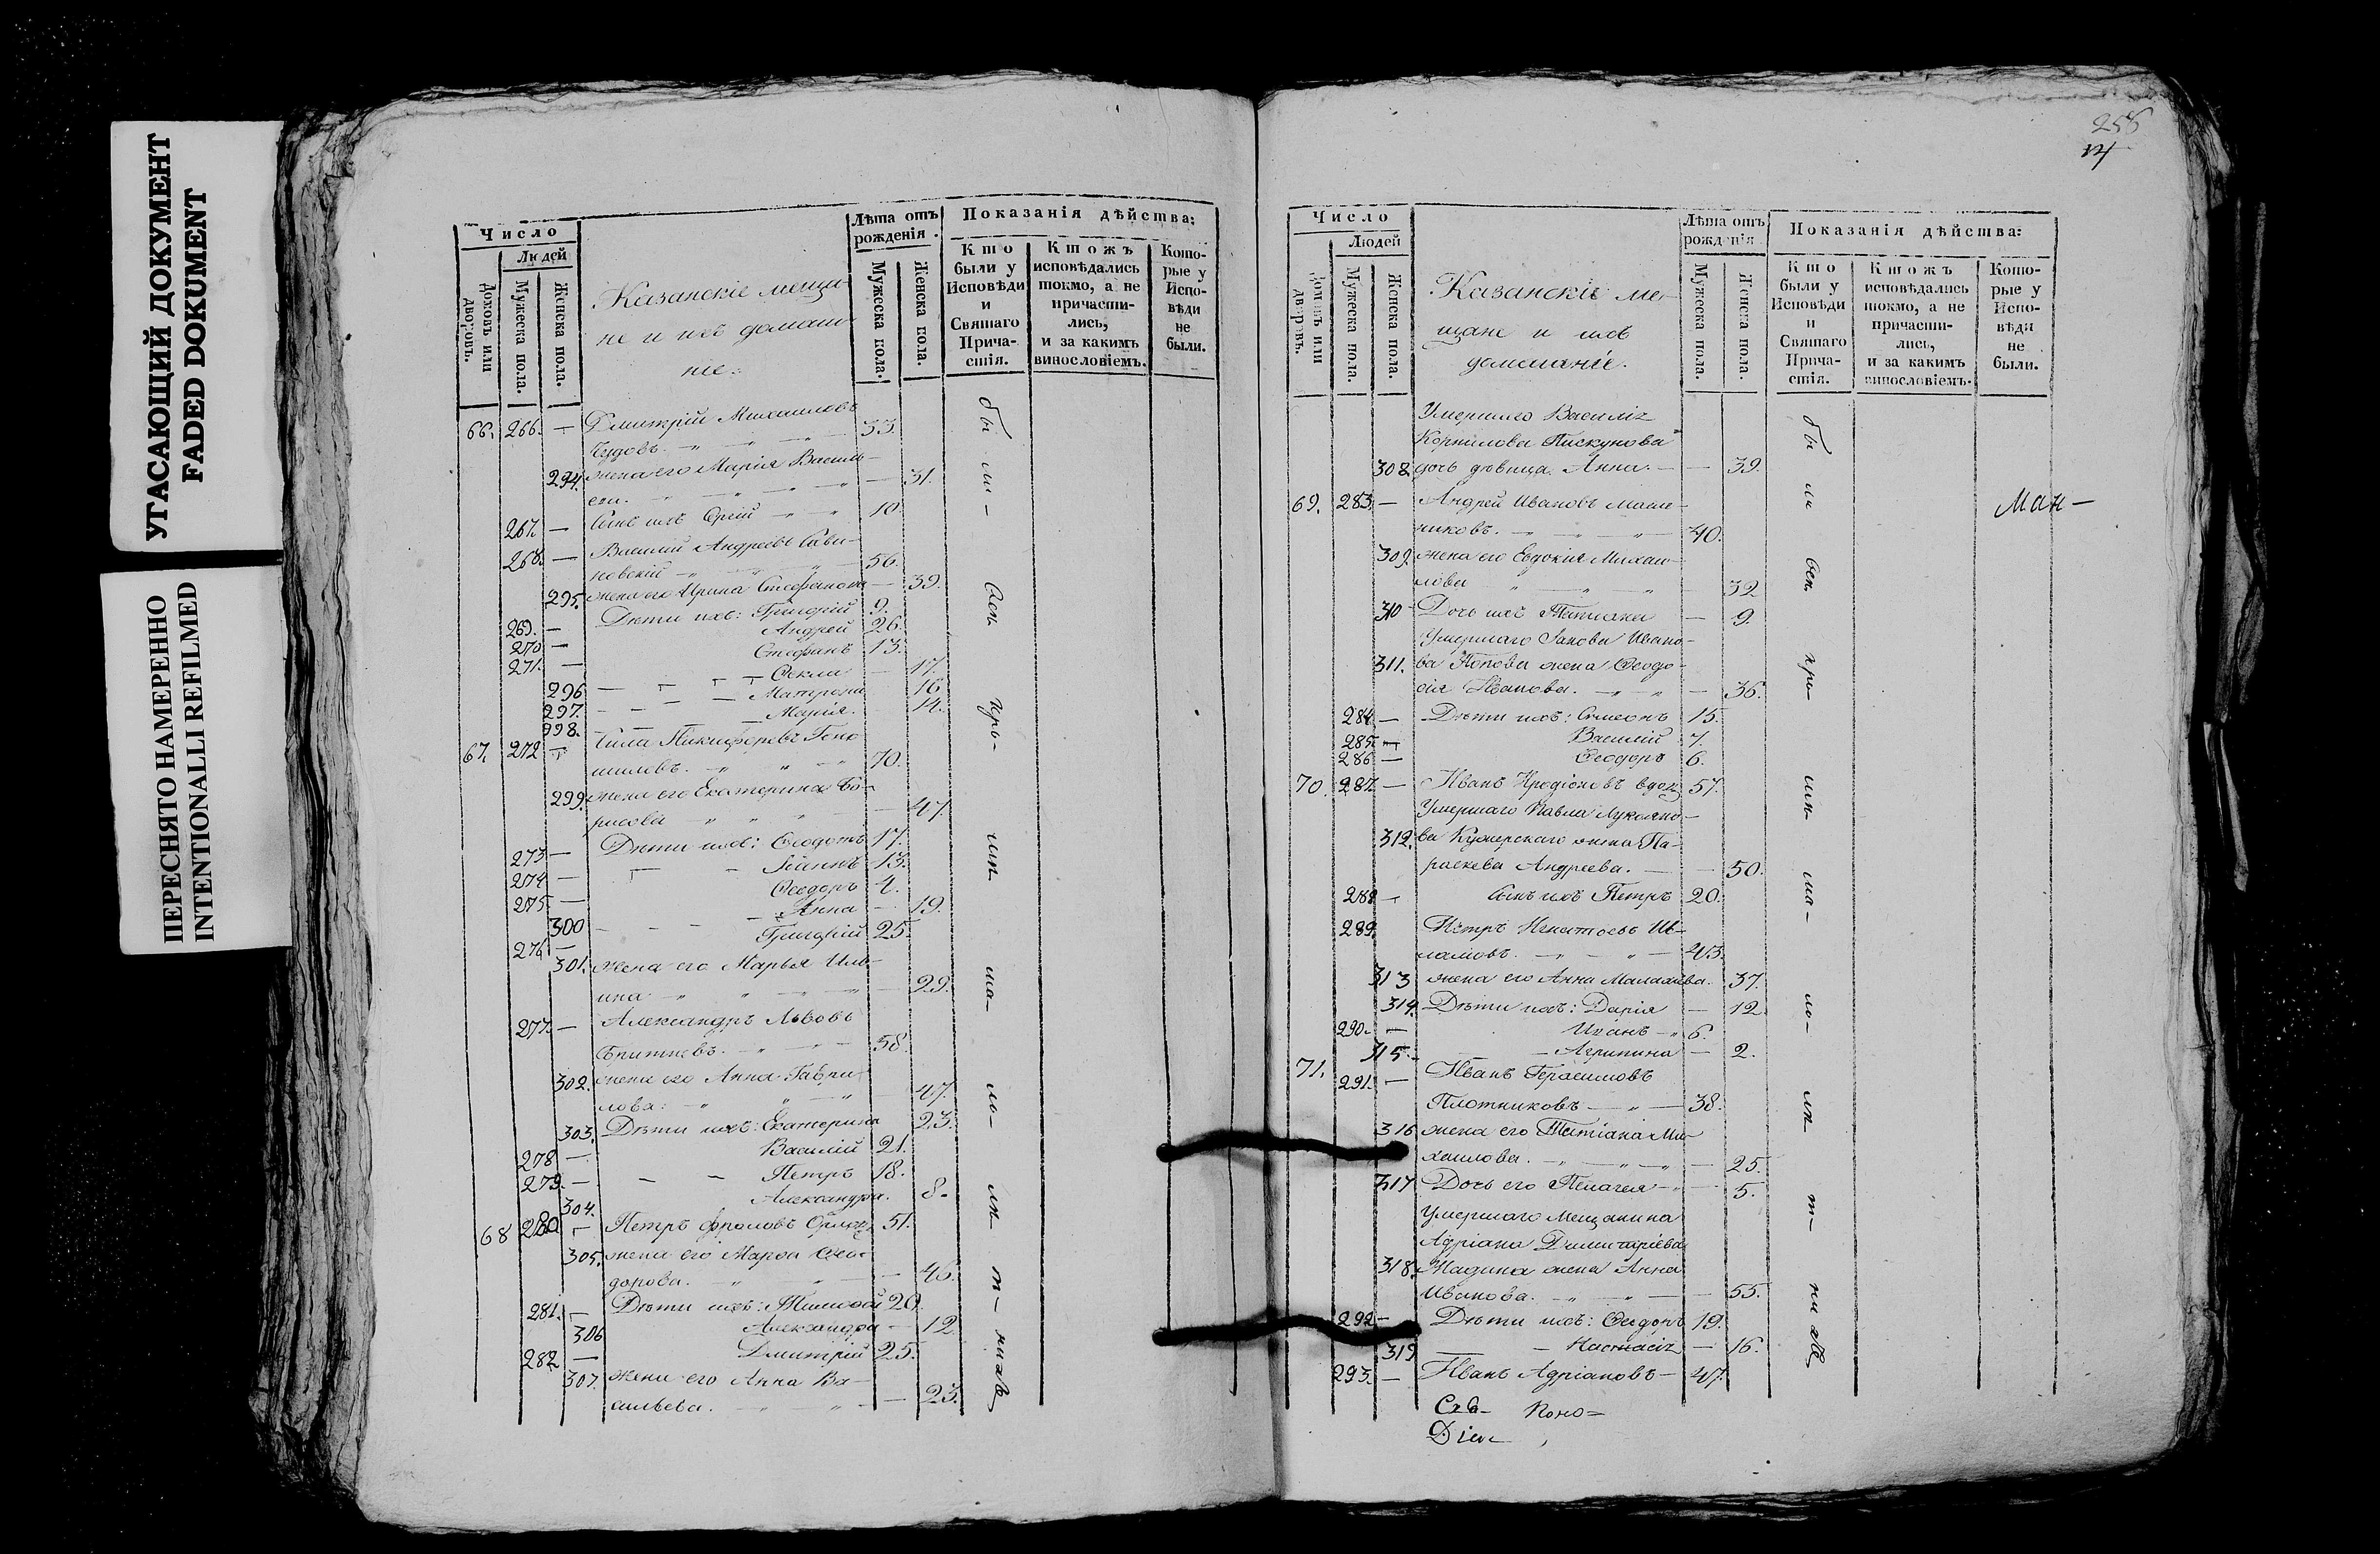 УГАСАЮЩИЙ ДОКУМЕНТ
FADED DOKUMENT
ПЕРЕСНЯТО НАМЕРЕННО
INTENTIONALLI REFILMED
Число
Людей
Домовъ или дворовъ.
Мужеска пола.
Женска пола.
Казанскіе меща-
не и ихъ домаш-
ніе.
Лѣта отъ рожденія.
Мужеска пола.
Женска пола.
Показанія дѣйства:
Кто были у Исповѣди и Святаго Прича-стія.
Ктожъ исповѣдались токмо, а не причасти-лись, и за какимъ винословіемъ.
Кото-рые у Испо-вѣди не были.
66. 266. — Дмитрій Михаиловъ
Чудовъ. 33.
294. жена его Марія Василь-
ева. — 31.
267. — Сынъ ихъ 10
268. — Василій Андреевъ Сави-
новскій 56.
295. жена его Ирина Стефанова — 39.
Дѣти ихъ: Григорій 9.
269. — Андрей 26.
270 — Стефанъ 13.
271. — Фекла — 17.
296 — Матрона 16
297. — Марія. 14.
298.
67. 272 — Никифоровъ
70.
299. жена его Екатерина Бо-
рисова — 47.
Дѣти ихъ: Феодотъ 17.
273 — Іоаннъ 13.
274 — Феодоръ 4.
275 — Анна — 19.
300 — Григорій 25.
276 —
301. жена его Марья Иль-
ина 29.
277. — Александръ Львовъ
58.
302. жена его Анна Гаври-
лова: — 47.
303. Дѣти ихъ: Екатерина 23.
278 — Василій 21.
279. — Петръ 18.
304. Александра. 8.
68 280 — Петръ Фроловъ 51.
305. жена его Марѳа Фео-
дорова. — 46.
281. — Дѣти ихъ: Тимофей 20.
306 Александра — 12.
282 — Дмитрій 25.
307. жена его Анна Ва-
сильева. — 23.
бы ли - вси при- чи- ща- ло- ли- т- нихъ
258
14
Число
Людей
Домовъ или дворовъ.
Мужеска пола.
Женска пола.
Казанскіе ме-
щане и ихъ
домашніе.
Лѣта отъ рожденія
Мужеска пола.
Женска пола.
Показанія дѣйства:
Кто были у Исповѣди и Святаго Прича-стія.
Ктожъ исповѣдались токмо, а не причасти-лись, и за какимъ винословіемъ.
Кото-рые у Испо-вѣди не были.
Умершаго Василія
Корнилова Пискунова
308. дочь дѣвица Анна. — 39.
69. 283. — Андрей Ивановъ Масле-
никовъ. 40.
309. жена его Евдокія Михаи-
лова — 32
310 Дочь ихъ Татіана — 9.
Умершаго Іакова Ивано-
311. ва Попова жена Феодо-
сія Иванова. — 36.
284. — Дѣти ихъ: Симеонъ 15.
285. — Василій 7.
286 — Феодоръ 6.
70. 287. — Иванъ Иродіоновъ вдов 57.
Умершаго Павла Лукояно-
312. ва жена Па-
раскева Андреева. — 50.
288 — Сынъ ихъ Петръ 20.
289. Петръ Игнатьевъ
43.
313 жена его Анна Малахіева. 37.
314. Дѣти ихъ: Дарія — 12
290. — Иванъ 6.
315. — Агрипина — 2.
71. 291. — Иванъ Герасимовъ
Плотниковъ — 38.
316 жена его Татіана Ми-
хаилова. — 25.
317 Дочь его Пелагея — 5.
Умершаго Мещанина
Адріана Димитріева
318. жена Анна
Иванова. — 55.
292 — Дѣти ихъ: Феодоръ 19.
319 — Настасія — 16.
293. — Иванъ Адріановъ — 47.
бы ли вси при- чи- ща- ло- ли- т- ни хъ
Ман-
Поно=
Діа-